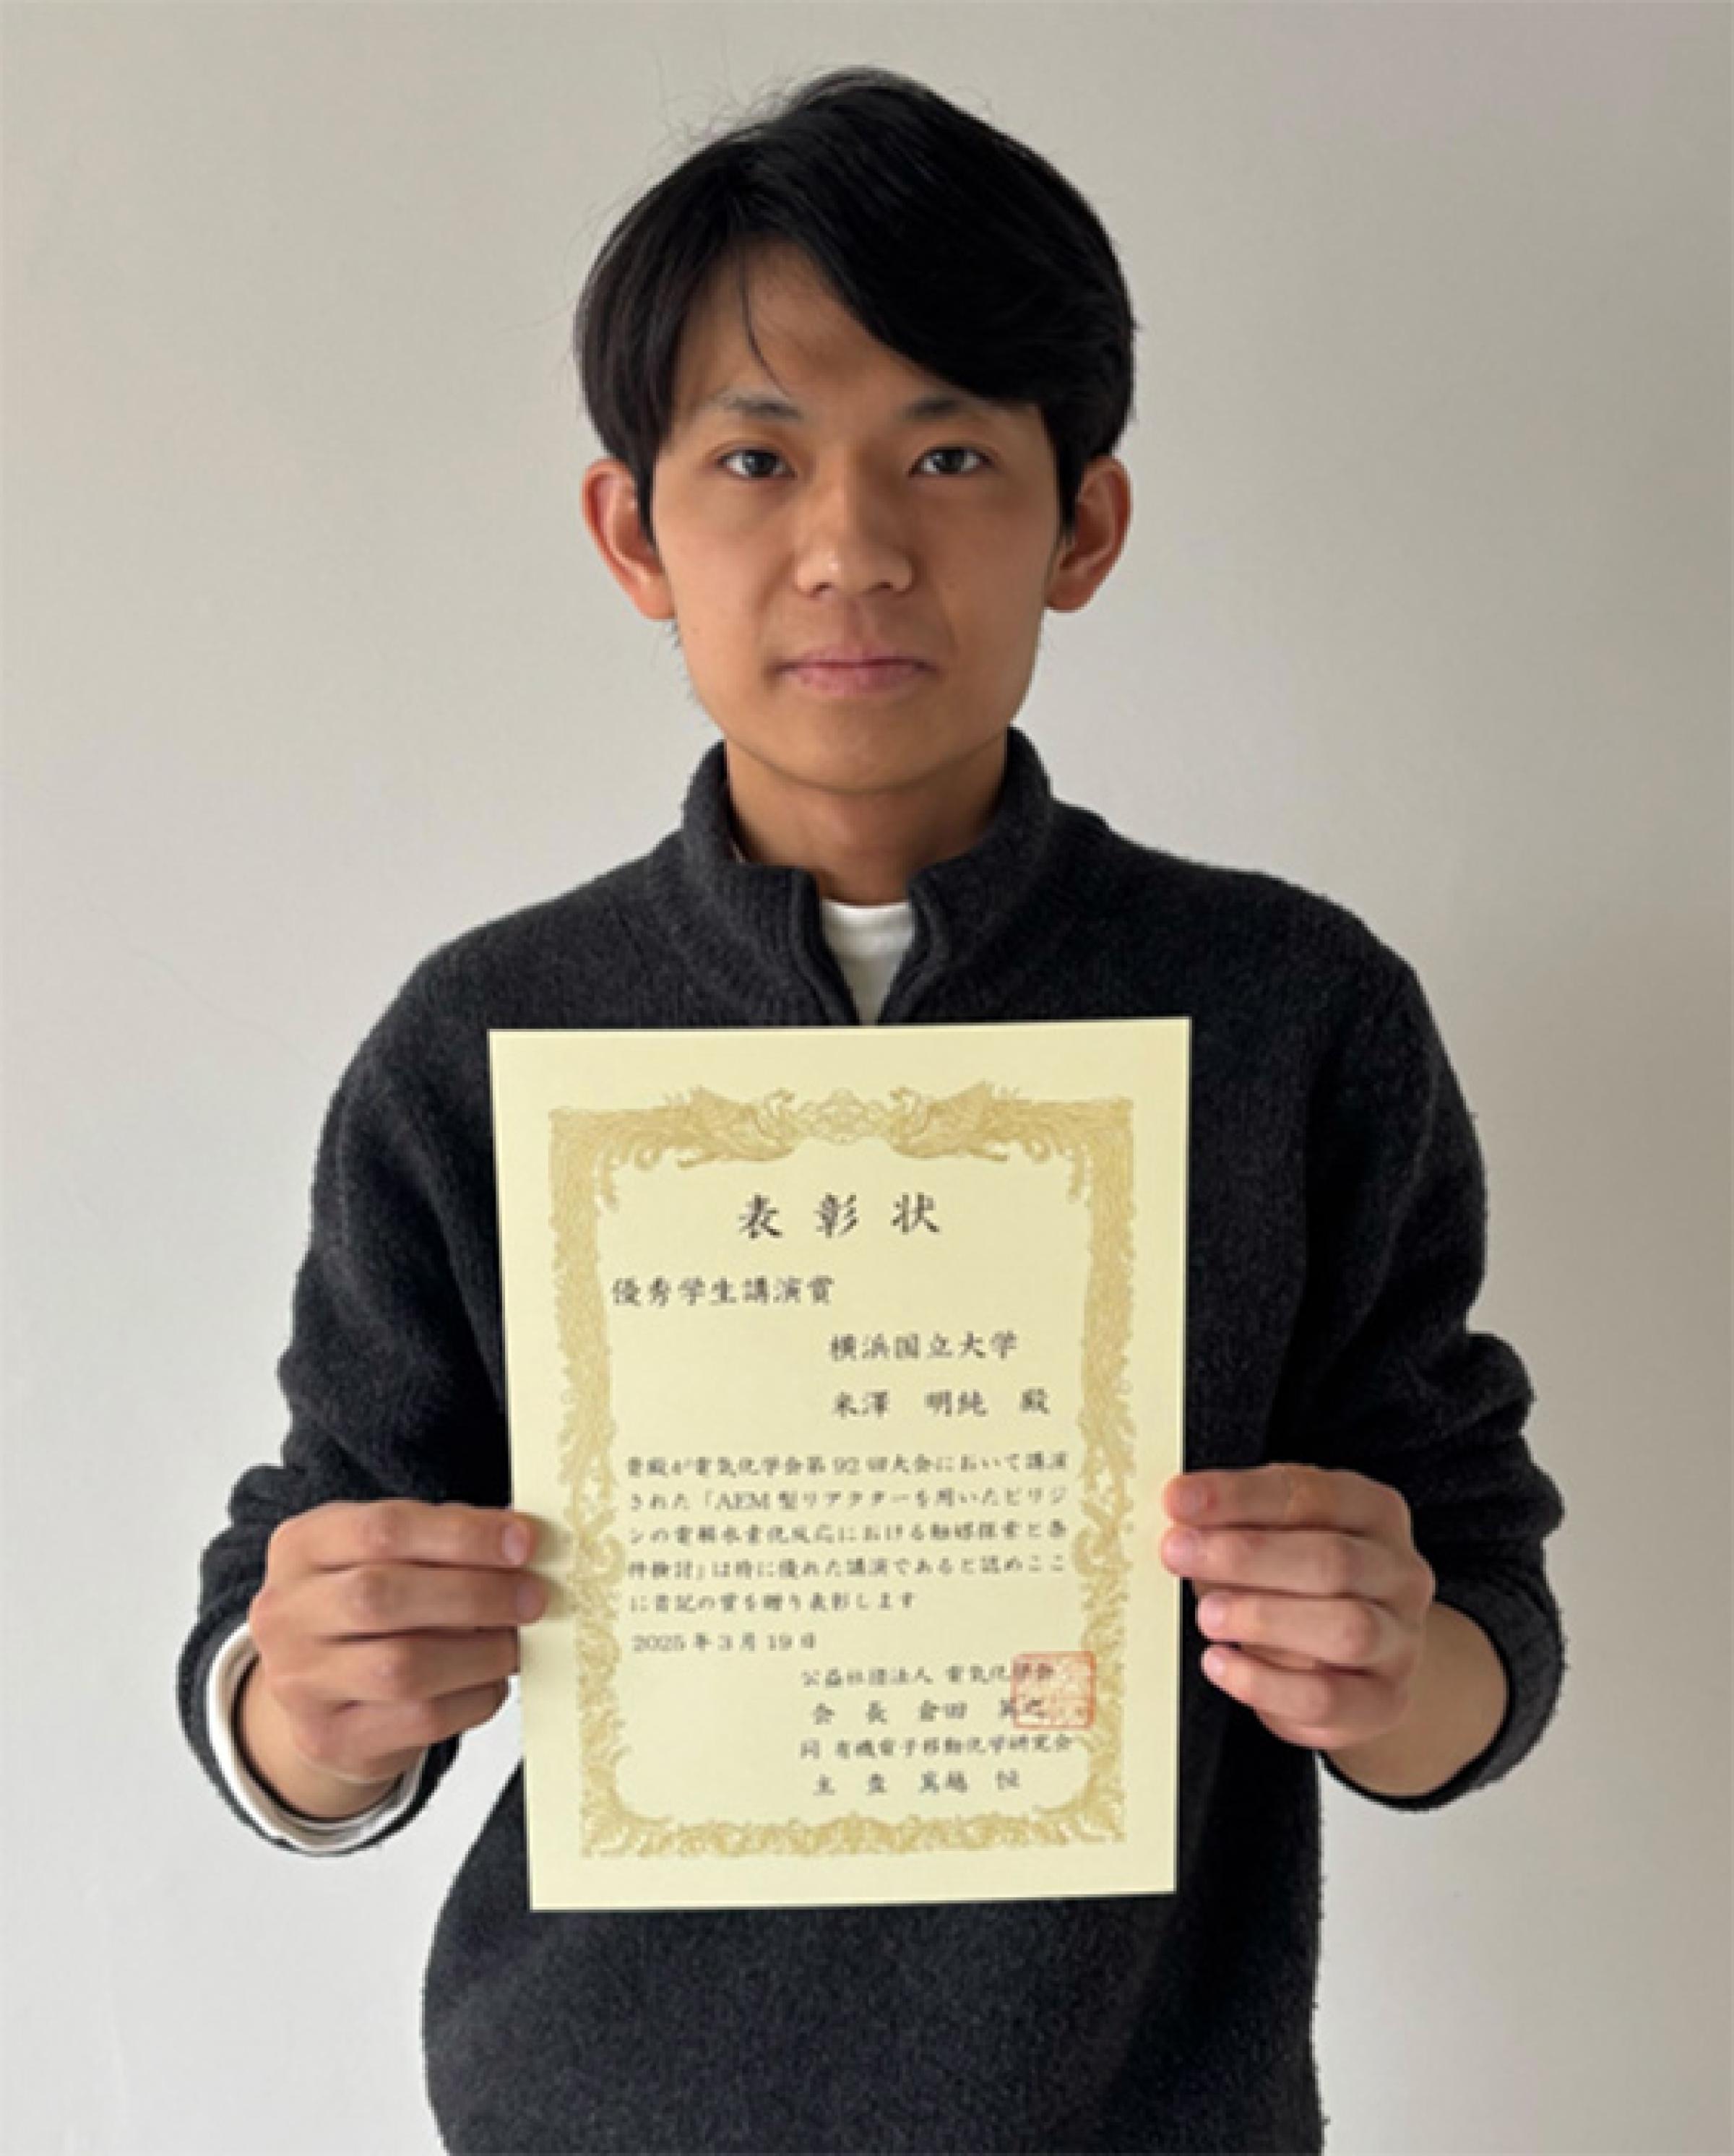 表彰状
優秀学生講演賞
横浜国立大学
米澤 明純 殿
貴殿が電気化学会第92回大会において講演
された「AEM型リアクターを用いたピリジ
ンの電解水素化反応における触媒探索と条
件検討」は特に優れた講演であると認めここ
に首記の賞を贈り表彰します
2025年3月19日
公益社団法人 電気化学会
会 長 倉田
同 有機電子移動化学研究会
主 査